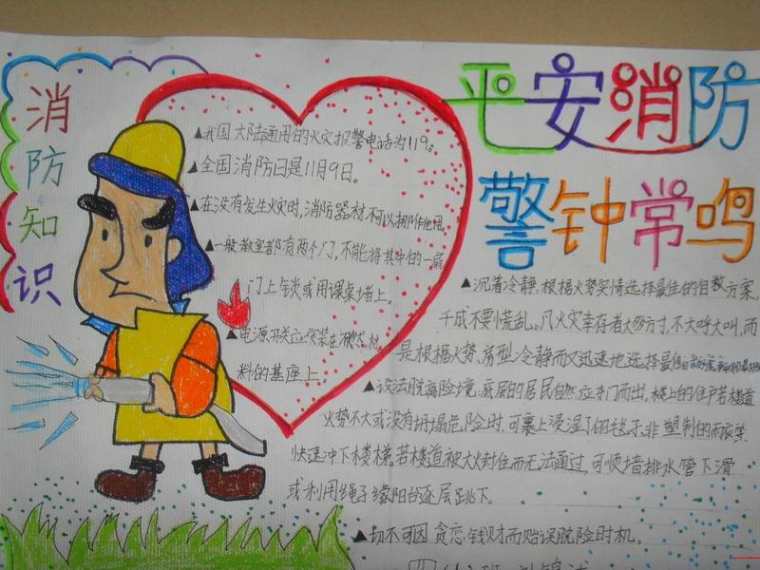 消防知识
平安消防
警钟常鸣
▲我国大陆通用的火灾报警电话为119。
▲全国消防日是11月9日。
▲在没有发生火灾时,消防器材不可以挪作他用
▲一般教室都有两个门,不能将其中的一扇
门上锁或用课桌堵上。
▲电源开关应安装在
料的基座上
▲沉着冷静,根据火势实情选择最佳的自救方案,
千万不要慌乱。凡火灾幸存者大多方寸,不大呼大叫,而
是根据火势、房型冷静而又迅速地选择最佳
▲设法脱离险境,底层的居民自然应夺门而出,楼上的住户若楼道
火势不大或没有坍塌危险时,可裹上浸湿了的毯子、非塑制的
快速冲下楼梯,若楼道被大火封住而无法通过,可便墙排水管下滑
或利用绳子缘阳台逐层跳下。
▲切不可因贪恋钱财而贻误脱险时机。